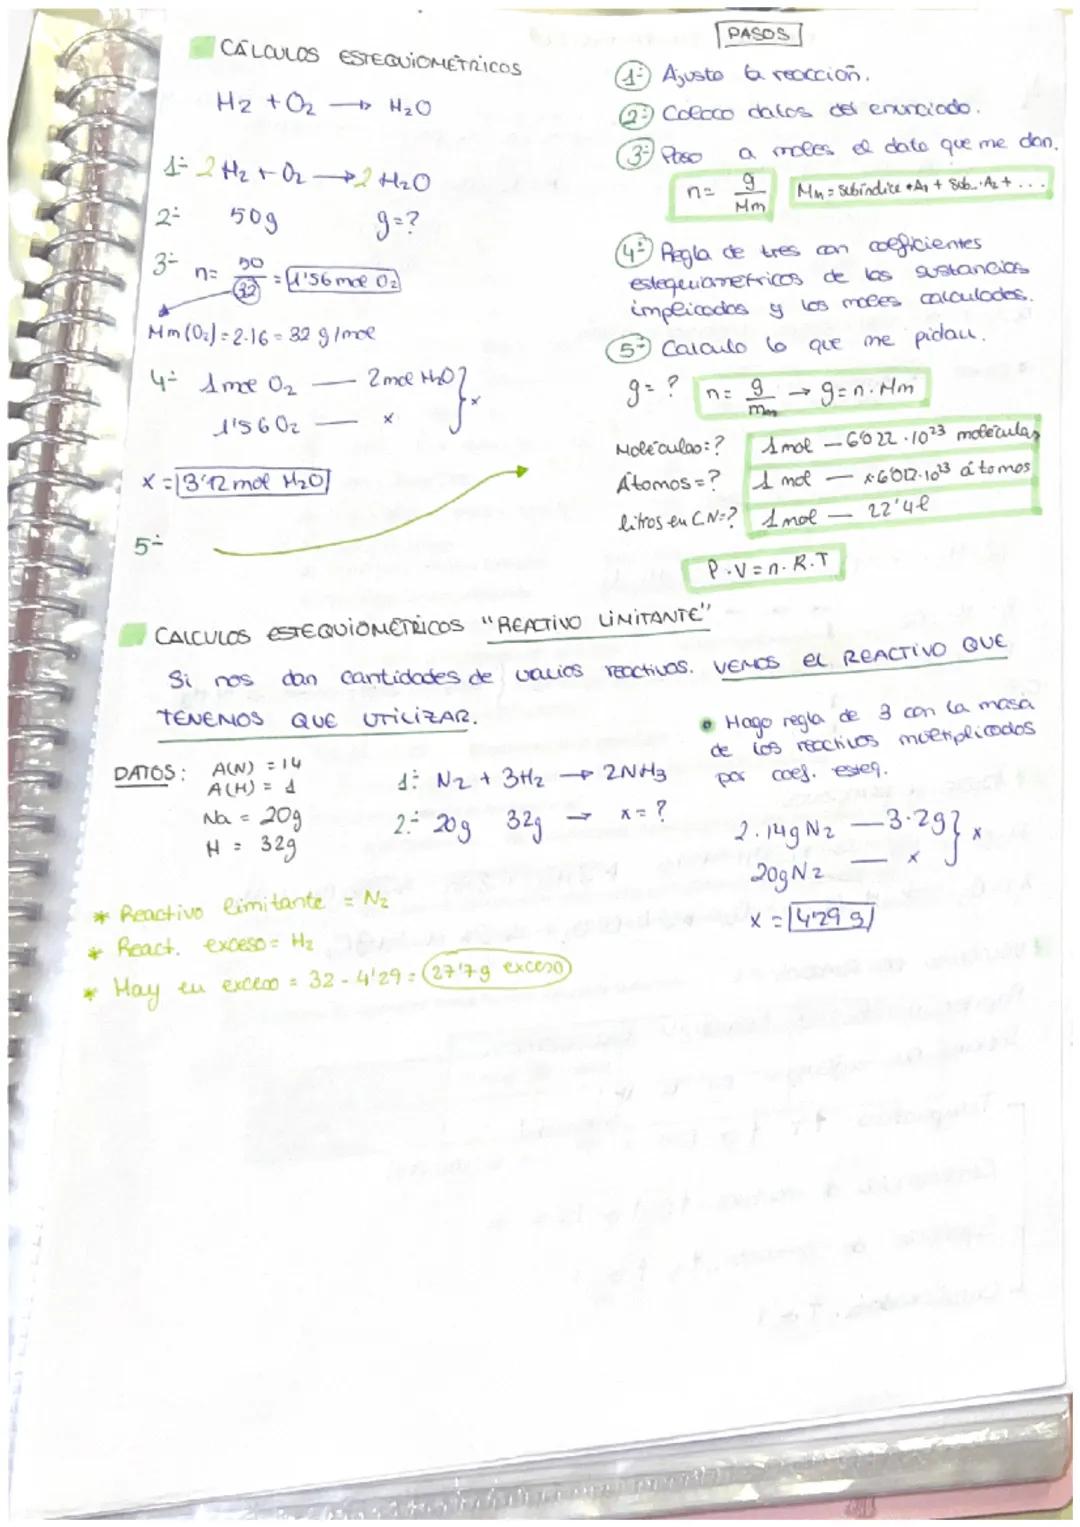 CÁLCULOS ESTEQUIOMÉTRICOS
H2 + O2 → H2O
1º 2 H2 + O2 → 2 H2O
2º 50g g=?
3º n= 50/32 = 1'56 mol O2
Mm(O2)=2·16=32 g/mol
4º 1 mol O2 — 2 mol H2O } x
1'56 O2 — x
x = 3'12 mol H2O
5º
PASOS
1º Ajusto la reacción.
2º Coloco datos del enunciado.
3º Paso a moles el dato que me dan.
n= g/Mm Mm = Subíndice · A1 + Sub.. · A2 + ...
4º Regla de tres con coeficientes
estequiometricos de las sustancias
implicadas y los moles calculados.
5º Calculo lo que me pidan.
g= ? n= g/mm → g=n·Mm
Moléculas=? 1 mol — 6'022·10^23 moléculas
Átomos=? 1 mol — x·6'022·10^23 átomos
litros en C.N=? 1 mol — 22'4l
P·V=n·R·T
CALCULOS ESTEQUIOMÉTRICOS "REACTIVO LIMITANTE"
Si nos dan cantidades de varios reactivos. VEMOS EL REACTIVO QUE
TENEMOS QUE UTILIZAR.
DATOS: A(N) = 14
A(H) = 1
Na = 20g
H = 32g
1º N2 + 3H2 → 2NH3
2º 20g 32g → x=?
• Hago regla de 3 con la masa
de los reactivos multiplicados
por coef. esteq.
2·14g N2 — 3·2g } x
20g N2 — x
x = 4'29 g
* Reactivo limitante = N2
* React. exceso = H2
* Hay en exceso = 32 - 4'29 = 27'7g exceso